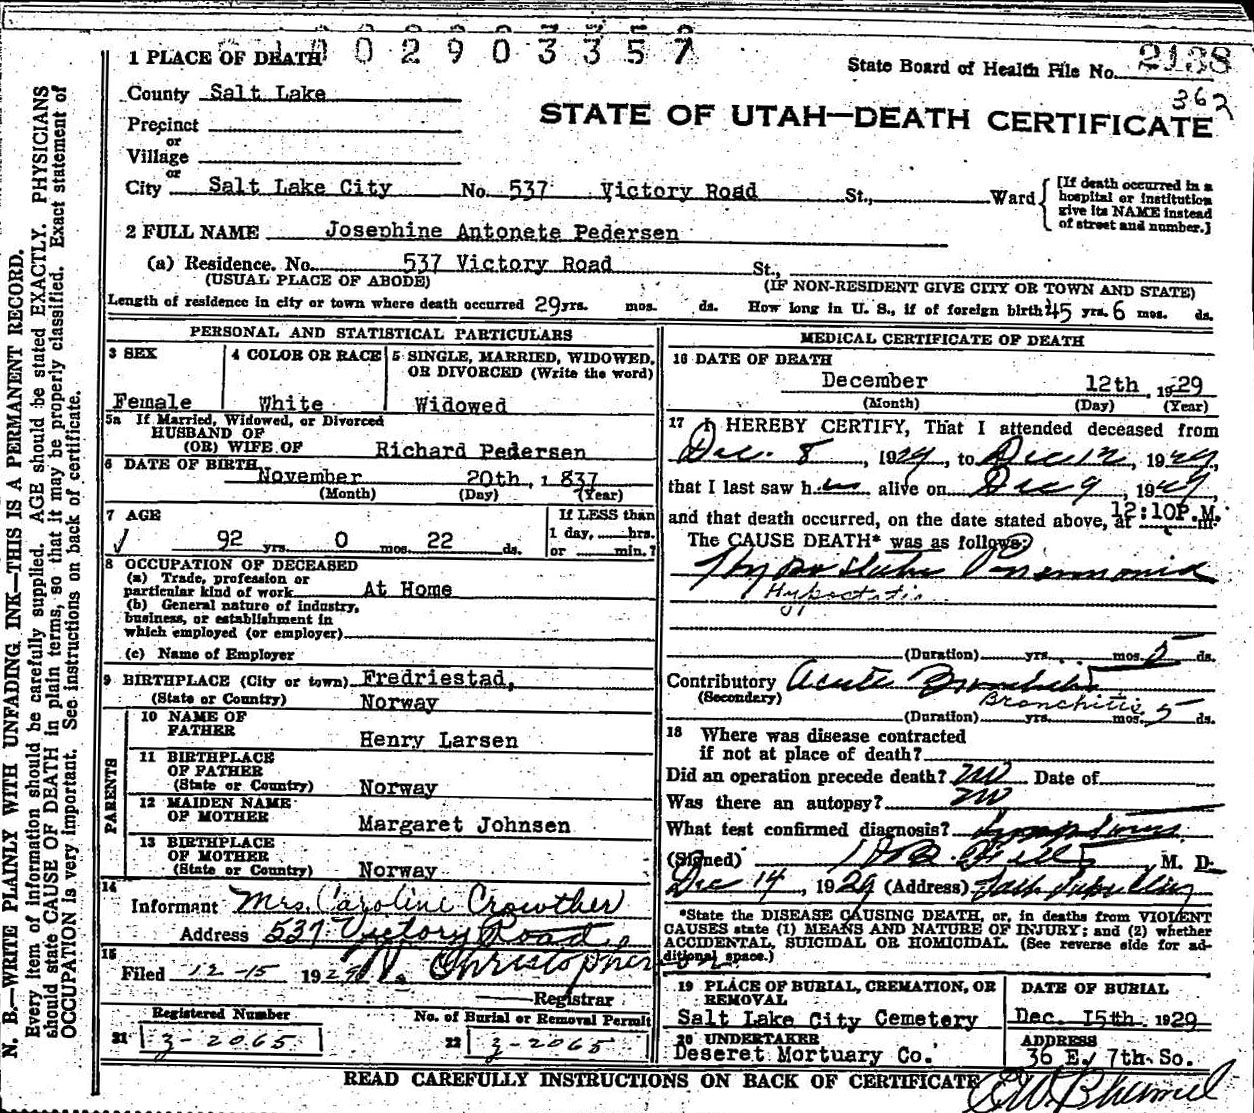 0 0 2 9 0 3 3 5 7
1 PLACE OF DEATH
State Board of Health File No. 2138
362
County Salt Lake
STATE OF UTAH—DEATH CERTIFICATE
Precinct
or
Village
or
City Salt Lake City No. 537 Victory Road St., Ward
[If death occurred in a hospital or institution give its NAME instead of street and number.]
2 FULL NAME Josephine Antonete Pedersen
(a) Residence. No. 537 Victory Road St.,
(USUAL PLACE OF ABODE) (IF NON-RESIDENT GIVE CITY OR TOWN AND STATE)
Length of residence in city or town where death occurred 29 yrs. mos. ds. How long in U. S., if of foreign birth? 45 yrs. 6 mos. ds.
PERSONAL AND STATISTICAL PARTICULARS
3 SEX
Female
4 COLOR OR RACE
White
5 SINGLE, MARRIED, WIDOWED, OR DIVORCED (Write the word)
Widowed
5a If Married, Widowed, or Divorced
HUSBAND OF
(OR) WIFE OF Richard Pedersen
6 DATE OF BIRTH
November 20th, 1837
(Month) (Day) (Year)
7 AGE
92 yrs. 0 mos. 22 ds.
If LESS than
1 day, hrs.
or min.?
8 OCCUPATION OF DECEASED
(a) Trade, profession or
particular kind of work At Home
(b) General nature of industry,
business, or establishment in
which employed (or employer)
(c) Name of Employer
9 BIRTHPLACE (City or town) Fredriestad,
(State or Country) Norway
PARENTS
10 NAME OF
FATHER
Henry Larsen
11 BIRTHPLACE
OF FATHER
(State or Country) Norway
12 MAIDEN NAME
OF MOTHER
Margaret Johnsen
13 BIRTHPLACE
OF MOTHER
(State or Country) Norway
14
Informant Mrs. Caroline Crowther
Address 537 Victory Road
15
Filed 12-15 1929 Christopherson
Registrar
Registered Number
21 3-2065
No. of Burial or Removal Permit
22 3-2065
MEDICAL CERTIFICATE OF DEATH
16 DATE OF DEATH
December 12th, 1929
(Month) (Day) (Year)
17 I HEREBY CERTIFY, That I attended deceased from
Dec. 8, 1929, to Dec 12, 1929,
that I last saw her alive on Dec 9, 1929,
and that death occurred, on the date stated above, at 12:10P.M. m.
The CAUSE DEATH* was as follows:
Hypostatic Pneumonia
Hypostatic
(Duration) yrs. mos. 5 ds.
Contributory Acute Bronchitis
(Secondary) Bronchitis
(Duration) yrs. mos. 5 ds.
18 Where was disease contracted
if not at place of death?
Did an operation precede death? no Date of
Was there an autopsy? no
What test confirmed diagnosis? Symptoms
(Signed) M. D.
Dec 14, 1929 (Address)
*State the DISEASE CAUSING DEATH, or, in deaths from VIOLENT
CAUSES state (1) MEANS AND NATURE OF INJURY; and (2) whether
ACCIDENTAL, SUICIDAL OR HOMICIDAL. (See reverse side for ad-
ditional space.)
19 PLACE OF BURIAL, CREMATION, OR
REMOVAL
Salt Lake City Cemetery
DATE OF BURIAL
Dec. 15th 1929
20 UNDERTAKER
Deseret Mortuary Co.
ADDRESS
36 E. 7th So.
READ CAREFULLY INSTRUCTIONS ON BACK OF CERTIFICATE
N. B.—WRITE PLAINLY WITH UNFADING INK—THIS IS A PERMANENT RECORD.
Every item of information should be carefully supplied. AGE should be stated EXACTLY. PHYSICIANS
should state CAUSE OF DEATH in plain terms, so that it may be properly classified. Exact statement of
OCCUPATION is very important. See instructions on back of certificate.